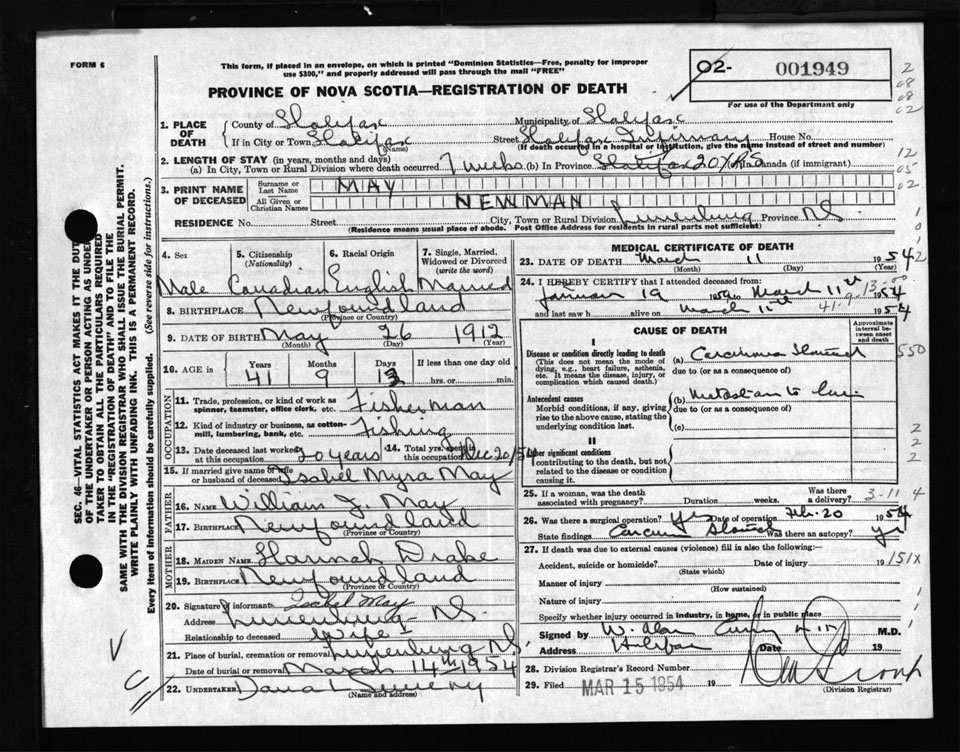 FORM 6
This form, if placed in an envelope, on which is printed "Dominion Statistics—Free, penalty for improper
use $300," and properly addressed will pass through the mail "FREE"
O2- 001949
For use of the Department only
PROVINCE OF NOVA SCOTIA—REGISTRATION OF DEATH
1. PLACE OF DEATH
County of Halifax Municipality of Halifax
If in City or Town Halifax (Name) Street Halifax Infirmary House No.
(If death occurred in a hospital or institution, give the name instead of street and number)
2. LENGTH OF STAY (in years, months and days)
(a) In City, Town or Rural Division where death occurred 7 weeks (b) In Province Halifax 20 YRS Canada (if immigrant)
3. PRINT NAME OF DECEASED
Surname or Last Name MAY
All Given or Christian Names NEWMAN
RESIDENCE No. Street City, Town or Rural Division Lunenburg Province NS.
(Residence means usual place of abode. Post Office Address for residents in rural parts not sufficient)
4. Sex Male
5. Citizenship (Nationality) Canadian
6. Racial Origin English
7. Single, Married, Widowed or Divorced (write the word) Married
8. BIRTHPLACE Newfoundland
(Province or Country)
9. DATE OF BIRTH May 26 1912
(Month) (Day) (Year)
10. AGE in Years 41 Months 9 Days 13 If less than one day old hrs. or min.
OCCUPATION
11. Trade, profession, or kind of work as spinner, teamster, office clerk, etc. Fisherman
12. Kind of industry or business, as cotton-mill, lumbering, bank, etc. Fishing
13. Date deceased last worked at this occupation 20 years
14. Total yrs. spent in this occupation Dec 20/5
15. If married give name of wife or husband of deceased Isabel Myra May
FATHER
16. Name William J. May
17. Birthplace Newfoundland
(Province or Country)
MOTHER
18. Maiden Name Hannah Drake
19. Birthplace Newfoundland
(Province or Country)
20. Signature of informant Isabel May
Address Lunenburg NS
Relationship to deceased Wife
21. Place of burial, cremation or removal Lunenburg NS
Date of burial or removal March 14th 1954
22. UNDERTAKER Dana Sweeny
(Name and address)
MEDICAL CERTIFICATE OF DEATH
23. DATE OF DEATH March 11 1954
(Month) (Day) (Year)
24. I HEREBY CERTIFY that I attended deceased from:
January 19 1954 to March 11th 1954
and last saw h alive on March 11th 1954
41-9-13
CAUSE OF DEATH
Approximate interval between onset and death
I
Disease or condition directly leading to death
(This does not mean the mode of dying, e.g., heart failure, asthenia, etc. It means the disease, injury, or complication which caused death.)
(a) Carcinoma Stomach
due to (or as a consequence of)
Antecedent causes
Morbid conditions, if any, giving rise to the above cause, stating the underlying condition last.
(b) Metastasis to
due to (or as a consequence of)
(c)
II
Other significant conditions
contributing to the death, but not related to the disease or condition causing it.
25. If a woman, was the death associated with pregnancy? Duration weeks. Was there a delivery? 3-11 4
26. Was there a surgical operation? Yes Date of operation Feb. 20 1954
State findings Stomach Was there an autopsy? yes
27. If death was due to external causes (violence) fill in also the following:—
Accident, suicide or homicide? Date of injury 19 151X
(State which)
Manner of injury
(How sustained)
Nature of injury
Specify whether injury occurred in industry, in home, or in public place
Signed by W. Alan M.D.
Address Halifax Date 19
28. Division Registrar's Record Number
29. Filed MAR 15 1954 19
(Division Registrar)
SEC. 46—VITAL STATISTICS ACT MAKES IT THE DUT
OF THE UNDERTAKER OR PERSON ACTING AS UNDER
TAKER TO OBTAIN ALL THE PARTICULARS REQUIRED
IN THE "REGISTRATION OF DEATH" AND TO FILE THE
SAME WITH THE DIVISION REGISTRAR WHO SHALL ISSUE THE BURIAL PERMIT.
WRITE PLAINLY WITH UNFADING INK. THIS IS A PERMANENT RECORD.
Every item of Information should be carefully supplied. (See reverse side for instructions.)